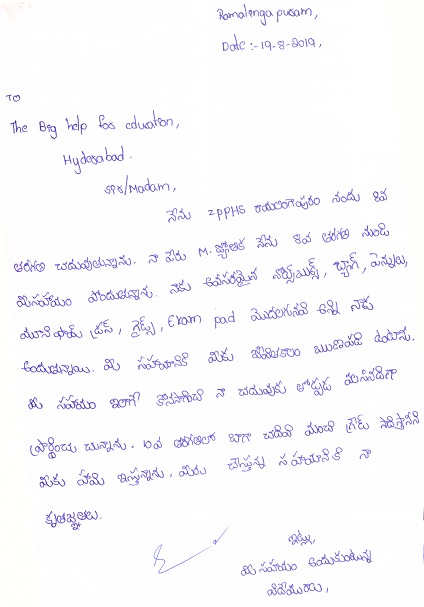 Ramalingapuram,
Date :- 19-8-2019,
TO
The Big help for education,
Hyderabad.
Sir/Madam,
నేను ZPPHS రామలింగాపురం నందు 8వ
తరగతి చదువుతున్నాను. నా పేరు M. జ్యోతిక నేను 8వ తరగతి నుండి
మీ సహాయం పొందుతున్నాను. నాకు అవసరమైన నోట్బుక్స్, బ్యాగ్, పెన్నులు,
యూనిఫామ్ డ్రస్, గైడ్స్, Exam pad మొదలగునవి అన్ని నాకు
అందుతున్నాయి. మీ సహాయానికి మీకు జీవితకాలం ఋణపడి ఉంటాను.
మీ సహాయం ఇలాగే కొనసాగించి నా చదువుకు తోడ్పడ వలసినదిగా
ప్రార్థించు చున్నాను. 10వ తరగతిలో బాగా చదివి మంచి గ్రేడ్ సాధిస్తానని
మీకు హామి ఇస్తున్నాను, మీరు చేస్తున్న సహాయానికి నా
కృతజ్ఞతలు.
ఇట్లు,
మీ సహాయం అందుకుంటున్న
విధేయురాలు,